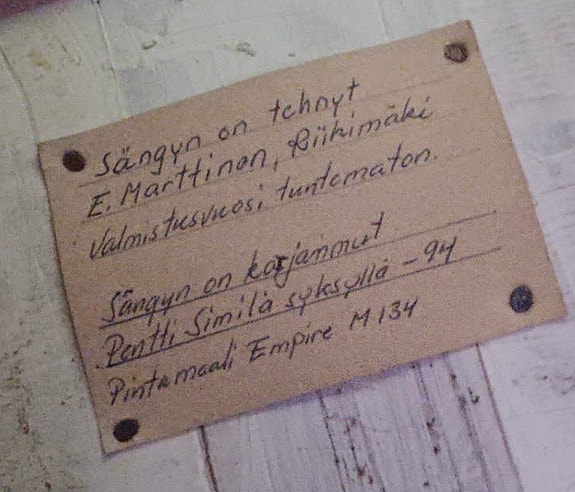 Sängyn on tehnyt
E. Marttinen, Riihimäki
Valmistusvuosi tuntematon.
Sängyn on korjannut
Pentti Similä syksyllä -94
Pintamaali Empire M 134